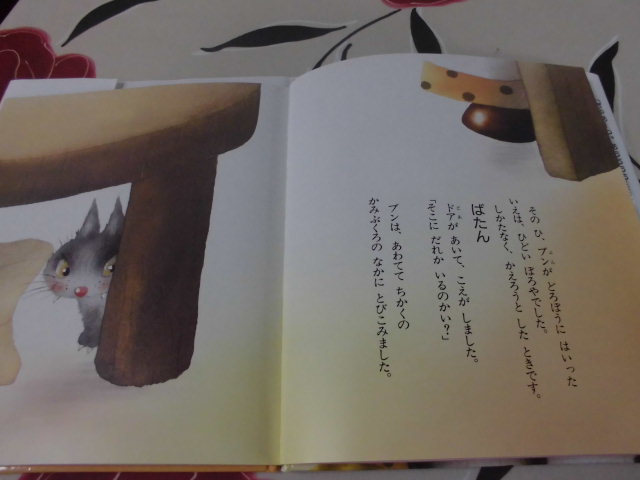 その ひ、ブンが どろぼうに はいった
いえは、ひどい ぼろやでした。
しかたなく、かえろうと した ときです。
ばたん
ドアが あいて、こえが しました。
「そこに だれか いるのかい？」
ブンは、あわてて ちかくの
かみぶくろの なかに とびこみました。